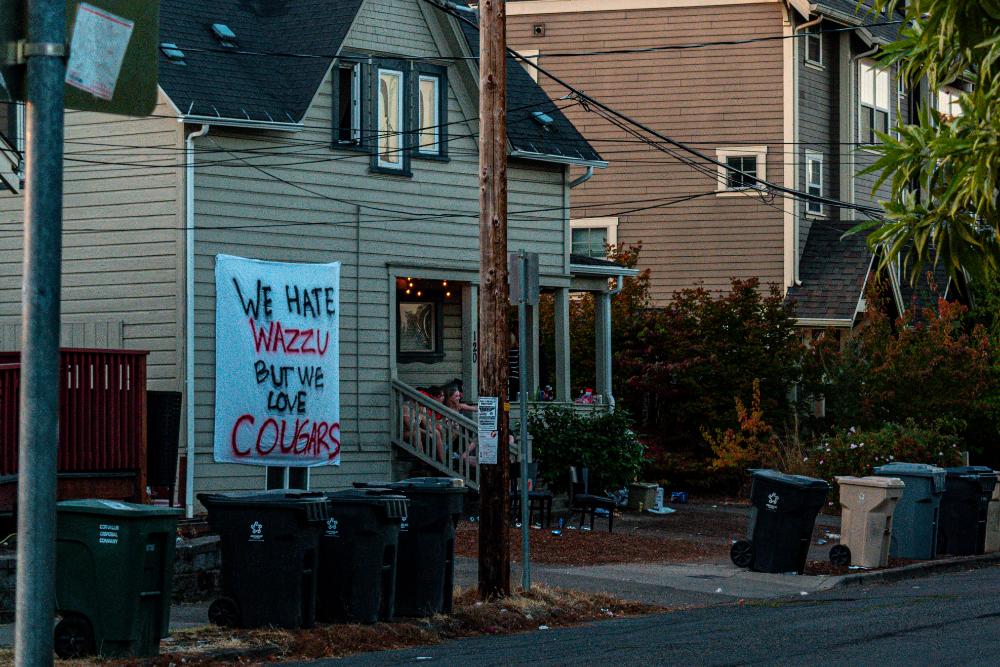 WE HATE
WAZZU
BUT WE
LOVE
COUGARS
120
CORVALLIS
DISPOSAL
COMPANY